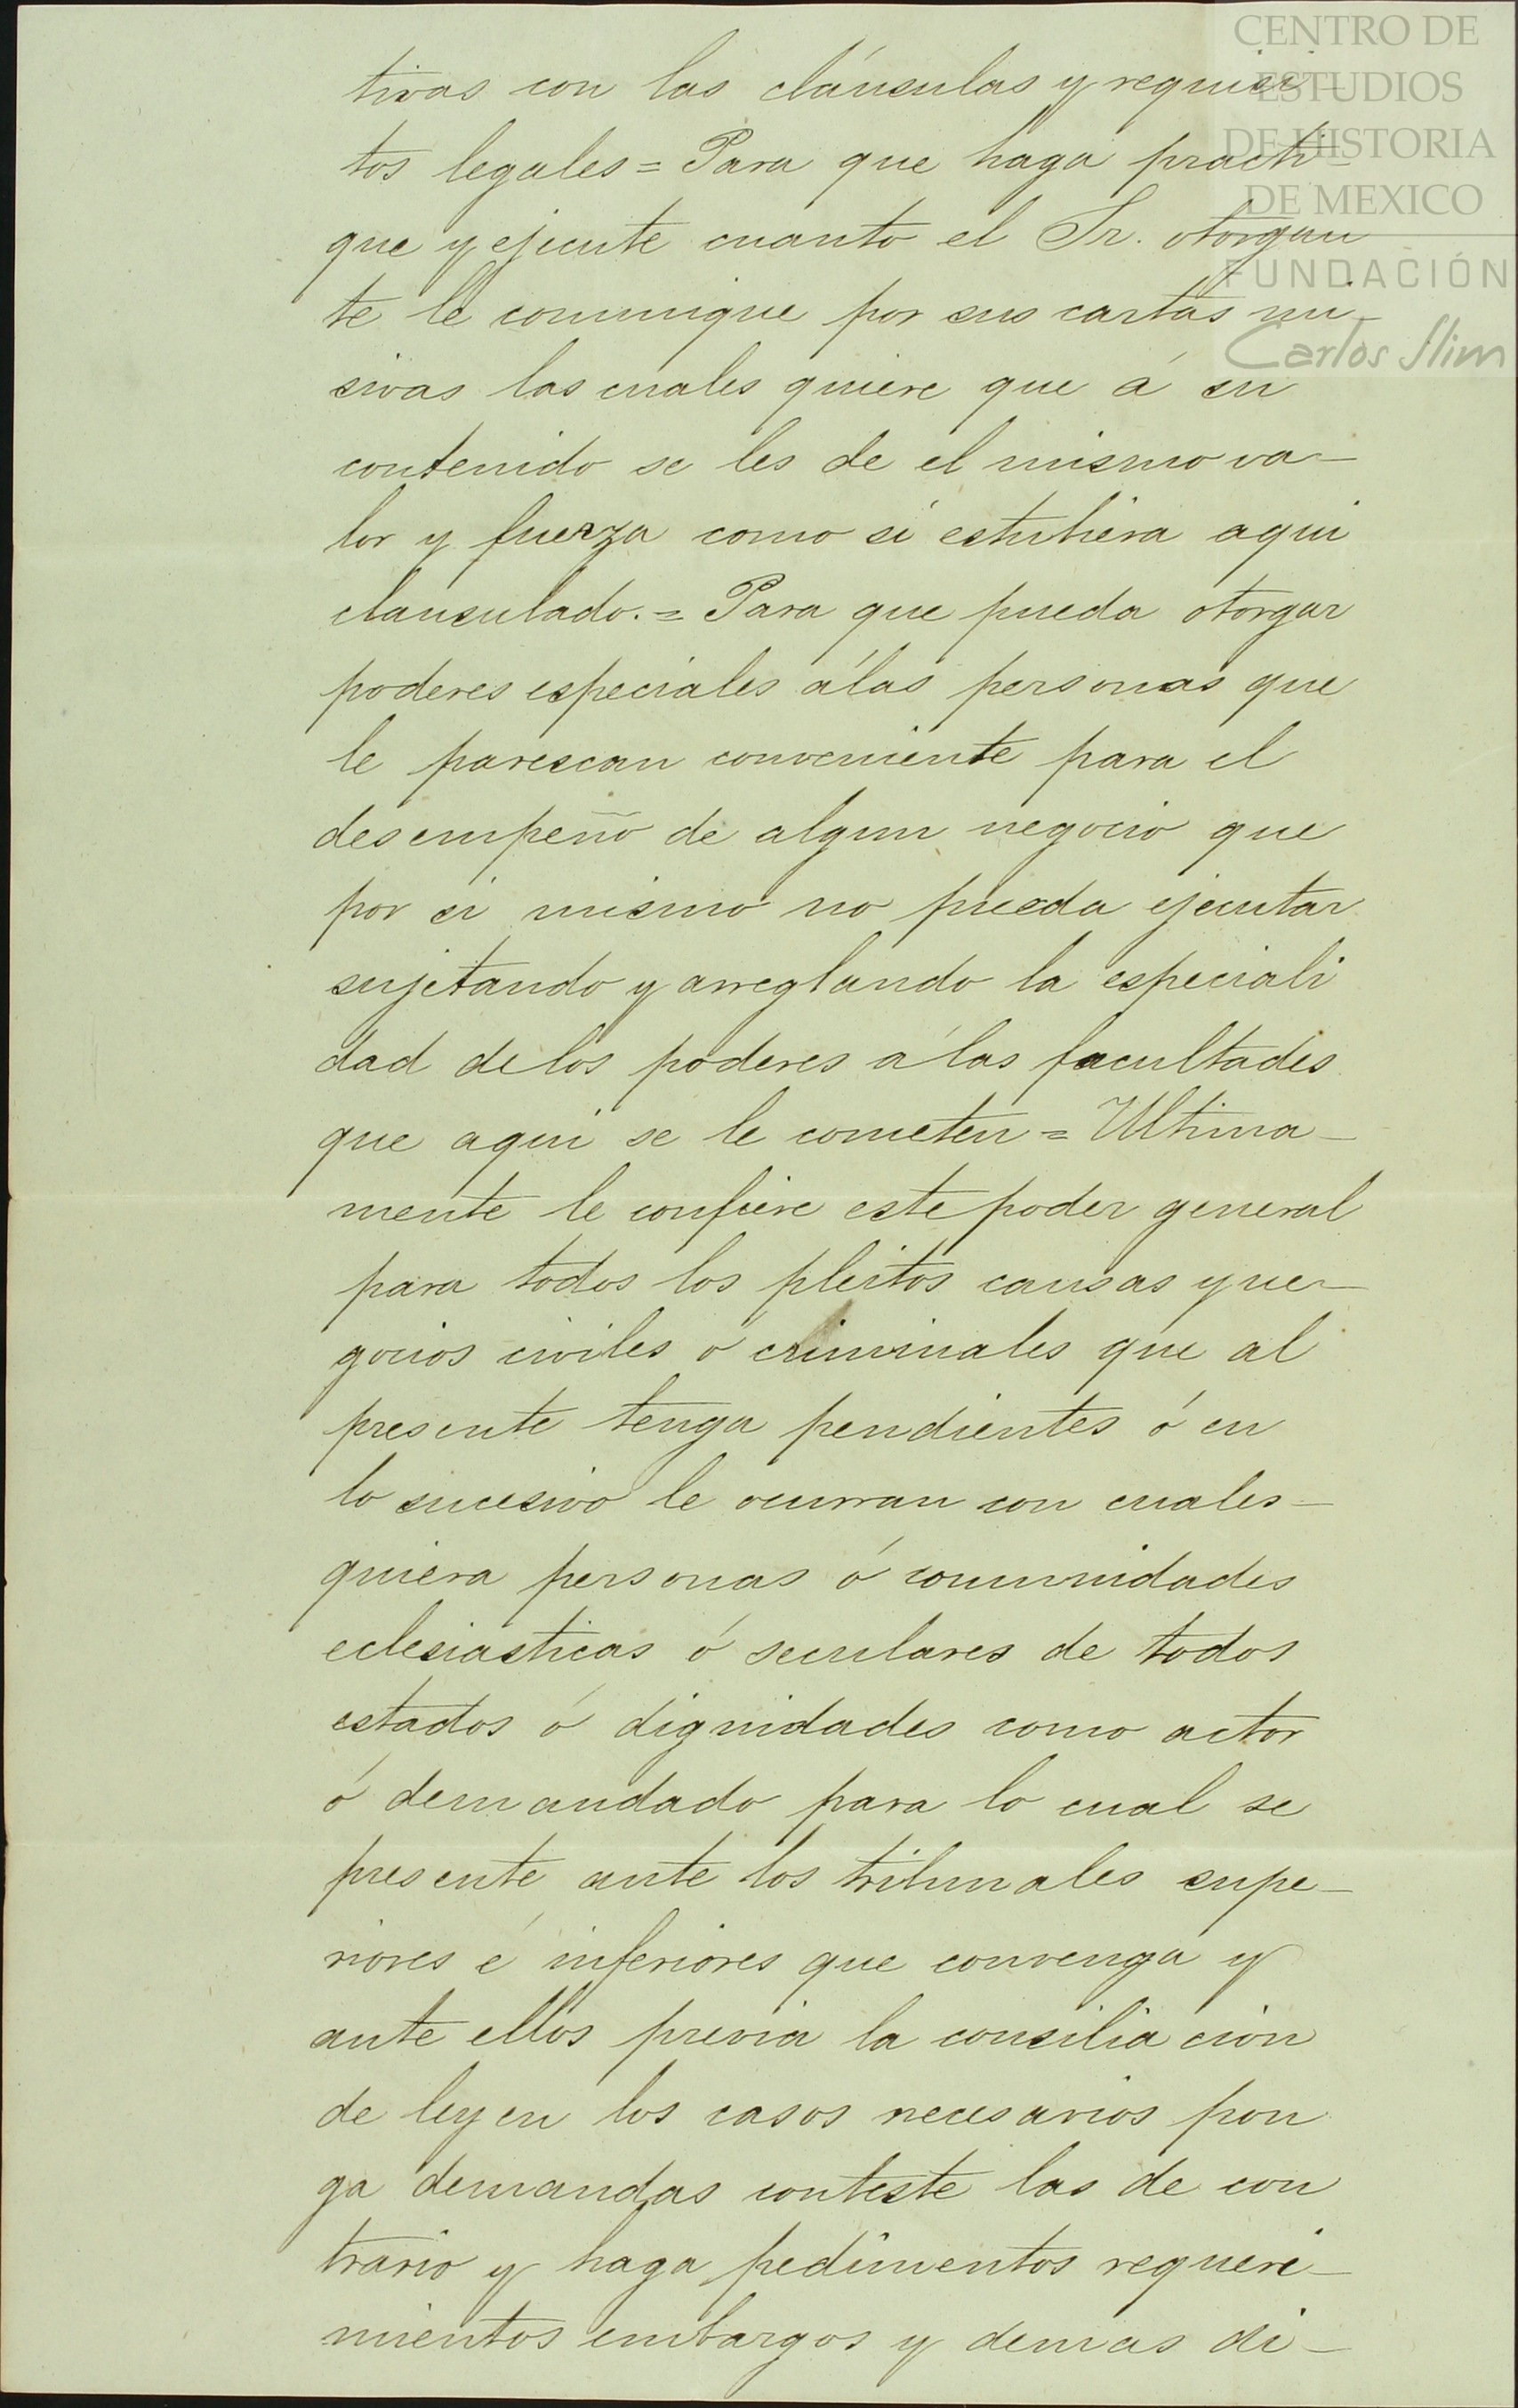 CENTRO DE
ESTUDIOS
DE HISTORIA
DE MEXICO
FUNDACIÓN
Carlos Slim
tivas con las cláusulas y requisi-
tos legales = Para que haga practi-
que y ejecute cuanto el Sr. otorgan
te le comunique por sus cartas mi-
sivas las cuales quiere que á su
contenido se les de el mismo va-
lor y fuerza como si estubiera aqui
clausulado. = Para que pueda otorgar
poderes especiales á las personas que
le parescan conveniente para el
desempeño de algun negocio que
por si mismo no pueda ejecutar
sujetando y arreglando la especiali
dad de los poderes á las facultades
que aqui se le cometen = Ultima-
mente le confiere este poder general
para todos los pleitos causas y ne-
gocios civiles ó criminales que al
presente tenga pendientes ó en
lo sucesivo le ocurran con cuales-
quiera personas ó comunidades
eclesiasticas ó seculares de todos
estados ó dignidades como actor
ó demandado para lo cual se
presente ante los tribunales supe-
riores é inferiores que convenga y
ante ellos previa la consiliacion
de ley en los casos necesarios pon
ga demandas conteste las de con
trario y haga pedimentos requeri-
mientos embargos y demas di-